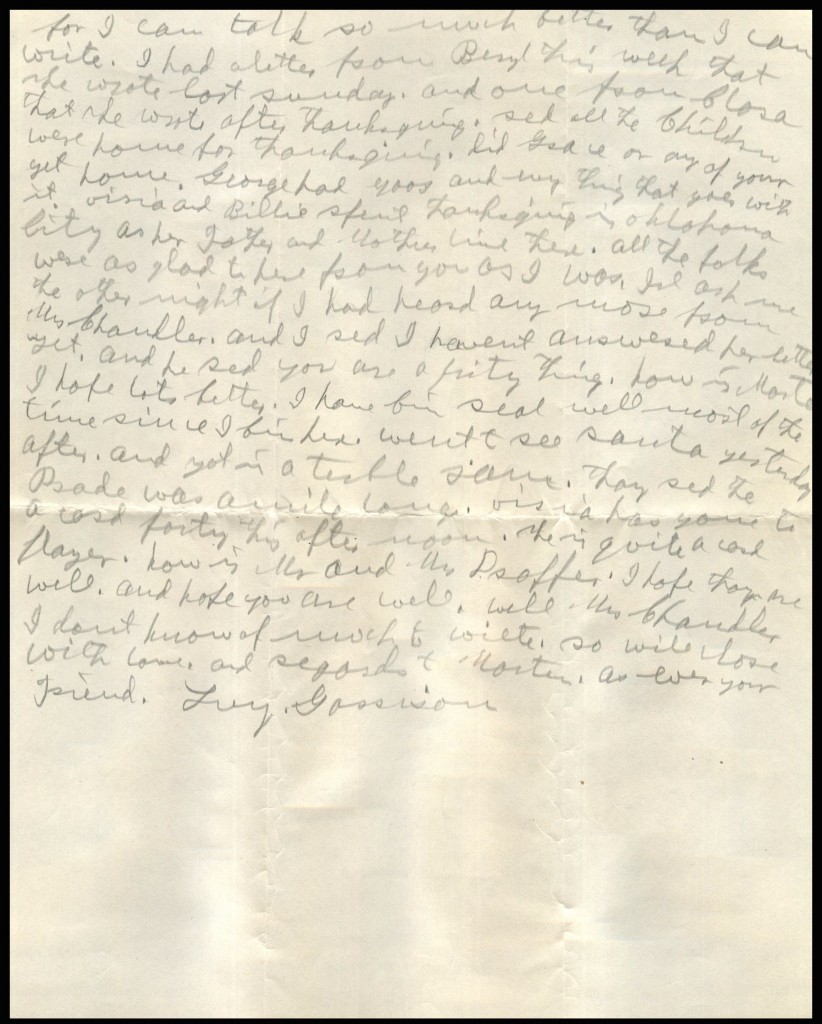 for I can talk so much better than I can
write. I had a letter from Beryl this week that
she wrote last sunday. and one from Clora
that she wrote after Thanksgiving. sed all the Children
were home for Thanksgiving. did Grace or any of your
get home. George had goos and evry thing that goes with
it. and Billie spent Thanksgiving in oklahoma
City as her Father and Mother live there. all the folks
were as glad to here from you as I was. ask me
the other night if I had heard any more from
Mrs Chandler. and I sed I havent answered her letter
yet. and he sed you are a prity thing. how is
I hope lots better. I have bin real well most of the
time since I bin here. went to see santa yesterday
after. and got in a terble jam. thay sed the
Prade was a mile long. has gone to
a card party this after noon. she is quite a card
Player. how is Mr and Mrs I hope thay are
well. and hope you are well. well Mrs Chandler
I dont know of much to write. so will close
with love. and regards to as ever your
Friend. Garrison